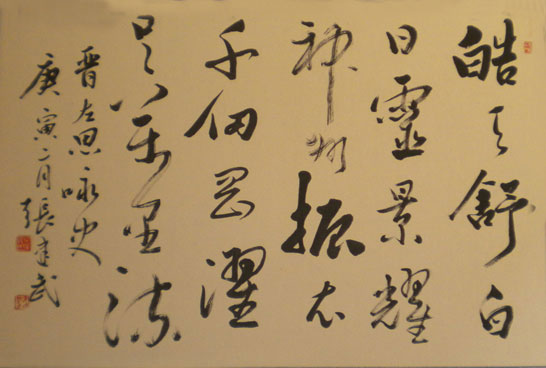 皓天舒白
日靈景耀
神州振衣
千仞岡濯
足萬里流
晋左思咏史
庚寅二月張建武